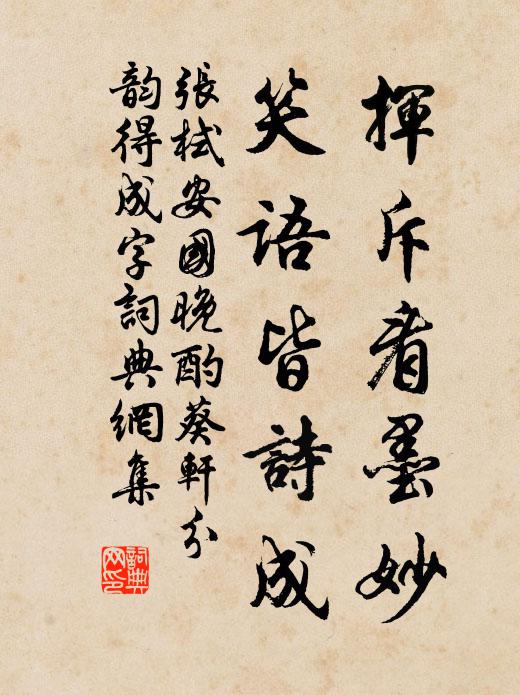 揮斥看墨妙
笑語皆詩成
張栻安國晚酌葵軒分
韵得成字詞典網集
詞典網印